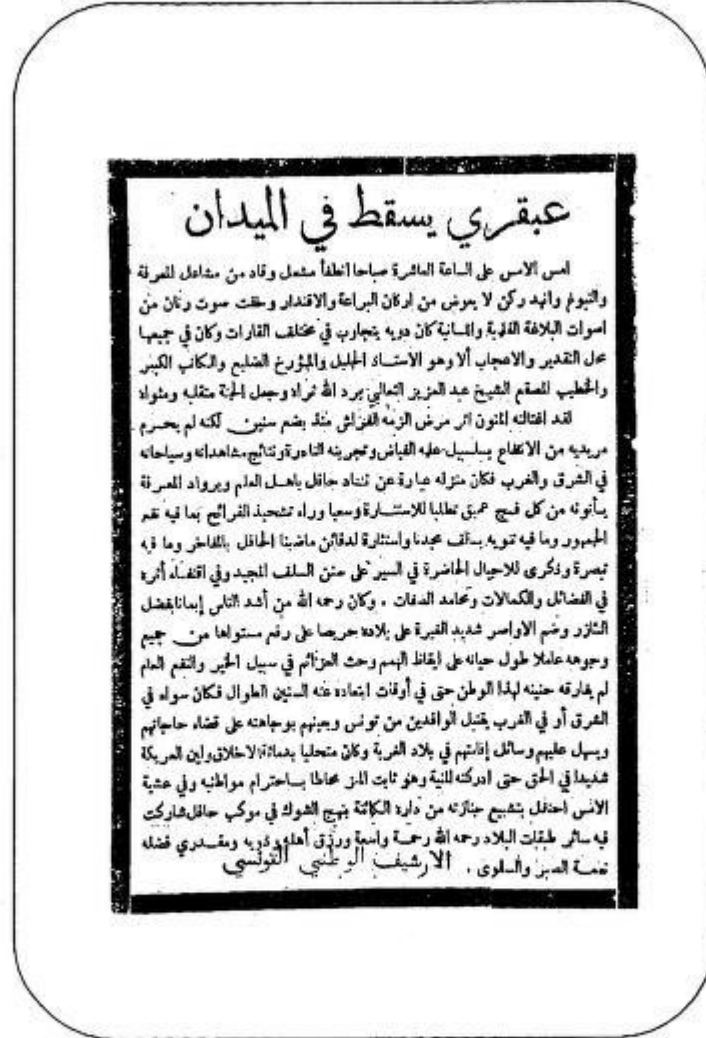 عبقري يسقط في الميدان
امس الامس على الساعة العاشرة صباحا انطفأ مشعل وقاد من مشاعل المعرفة
والنبوغ وانهد ركن لا يعوض من اركان البراعة والاقتدار وخفت صوت رنان من
اصوات البلاغة القلمية واللسانية كان دويه يتجاوب في مختلف القارات وكان في جميعها
محل التقدير والاعجاب ألا وهو الاستاذ الجليل والمؤرخ الضليع والكاتب الكبير
والخطيب المصقع الشيخ عبد العزيز الثعالبي برد الله ثراه وجعل الجنة منقلبه ومثواه
لقد اغتالته المنون اثر مرض الزمه الفراش منذ بضع سنين لكنه لم يحرم
مريديه من الانتفاع بسلسبيل علمه الفياض وتجربته النادرة ونتائج مشاهداته وسياحاته
في الشرق والغرب فكان منزله عبارة عن حافل باهل العلم ورواد المعرفة
يأتونه من كل فج عميق تطلبا للاستشارة وسعيا وراء تشحيذ القرائح بما فيه نفع
الجمهور وما فيه تنويه بسالف مجدنا واستثارة لدفائن ماضينا الحافل بالمفاخر وما فيه
تبصرة وذكرى للاجيال الحاضرة في السير على سنن السلف المجيد وفي اقتفاء أثره
في الفضائل والكمالات ومحامد الصفات . وكان رحمه الله من أشد الناس إيمانا بفضل
التآزر وضم الاواصر شديد الغيرة على بلاده حريصا على رفع مستواها من جميع
وجوهه عاملا طول حياته على ايقاظ الهمم وحث العزائم في سبيل الخير والنفع العام
لم يفارقه حنينه لهذا الوطن حتى في أوقات ابتعاده عنه السنين الطوال فكان سواء في
الشرق أو في الغرب يقتبل الوافدين من تونس ويعينهم بوجاهته على قضاء حاجاتهم
ويسهل عليهم وسائل إقامتهم في بلاد الغربة وكان متحليا بدماثة الاخلاق ولين العريكة
شديدا في الحق حتى ادركته المنية وهو ثابت محاطا باحترام مواطنيه وفي عشية
الامس احتفل بتشييع جنازته من داره الكائنة بنهج الشوك في موكب حافل شاركت
فيه سائر طبقات البلاد رحمه الله رحمة واسعة ورزق أهله وذويه ومقدري فضله
نعمة الصبر والسلوى .
الارشيف الوطني التونسي